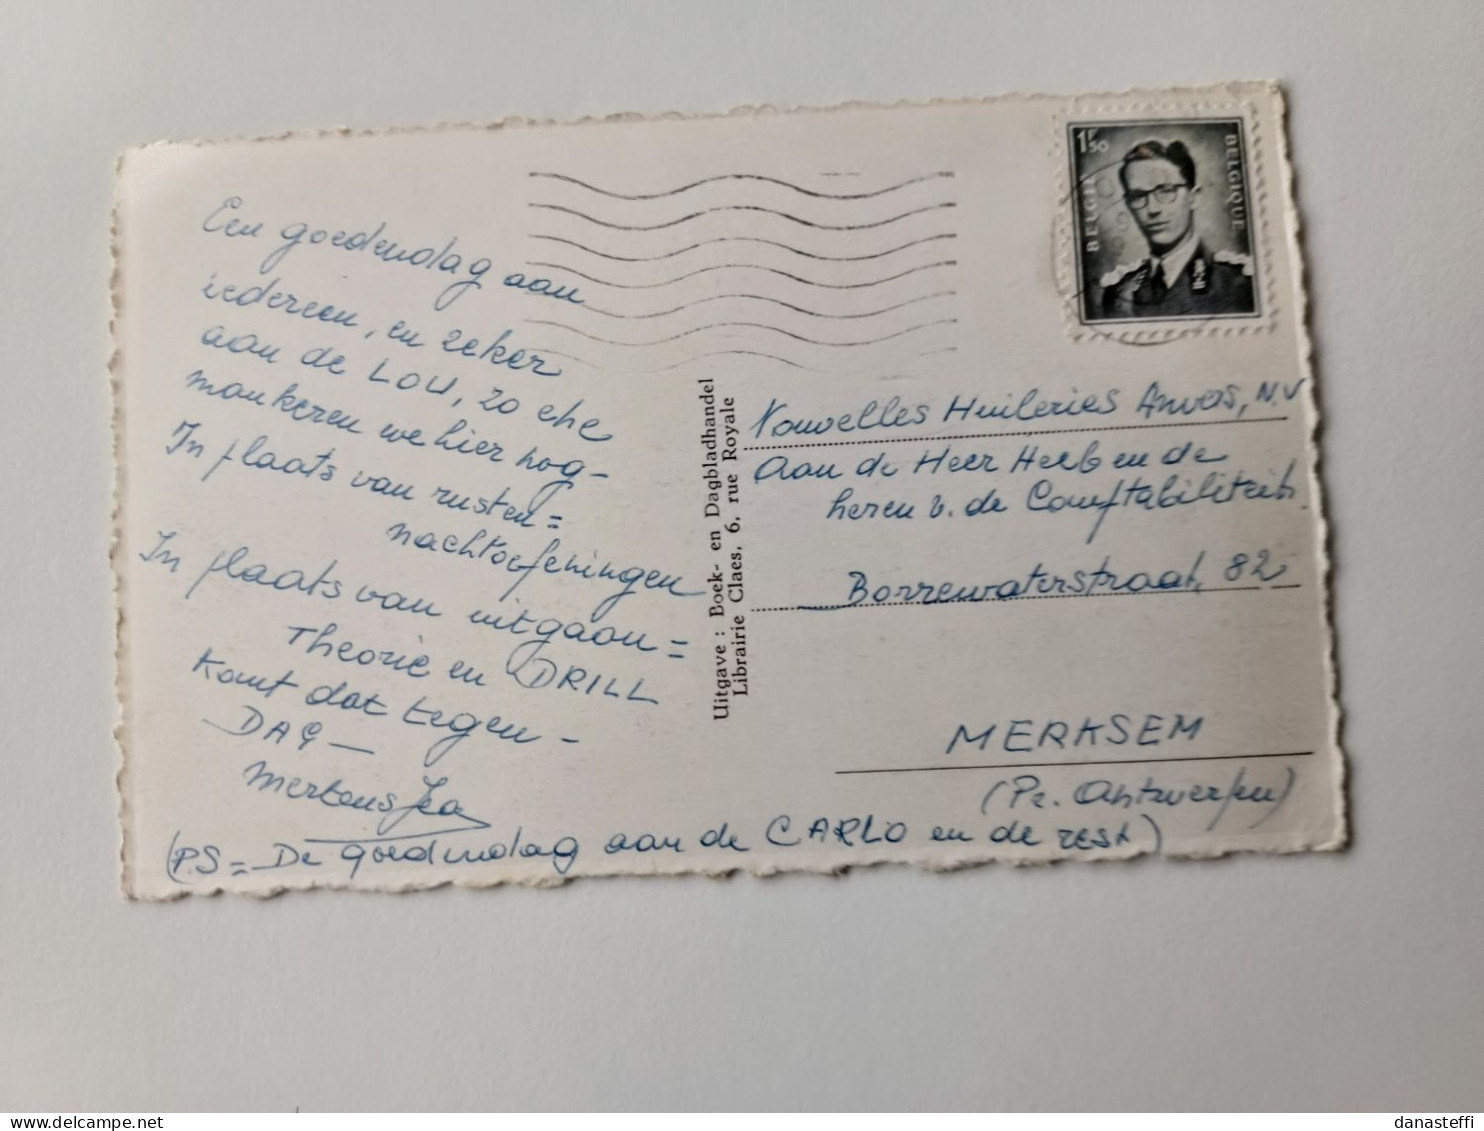 Een goedendag aan
iedereen, en zeker
aan de LOU, zo ehe
mankeren we hier nog-
In plaats van rusten=
nachtoefeningen
In plaats van uitgaan=
Theorie en DRILL
Komt dat tegen-
DAG-
Mertens
(P.S = De goedendag aan de CARLO en de rest)
Uitgave : Boek- en Dagbladhandel
Librairie Claes, 6, rue Royale
1F50
BELGIË
BELGIQUE
Nouvelles Huileries Anvers, N.V
Aan de Heer en de
heren v. de Comptabiliteit
Borrewaterstraat, 82
MERKSEM
(Pr. Antwerpen)
delcampe.net
danasteffi